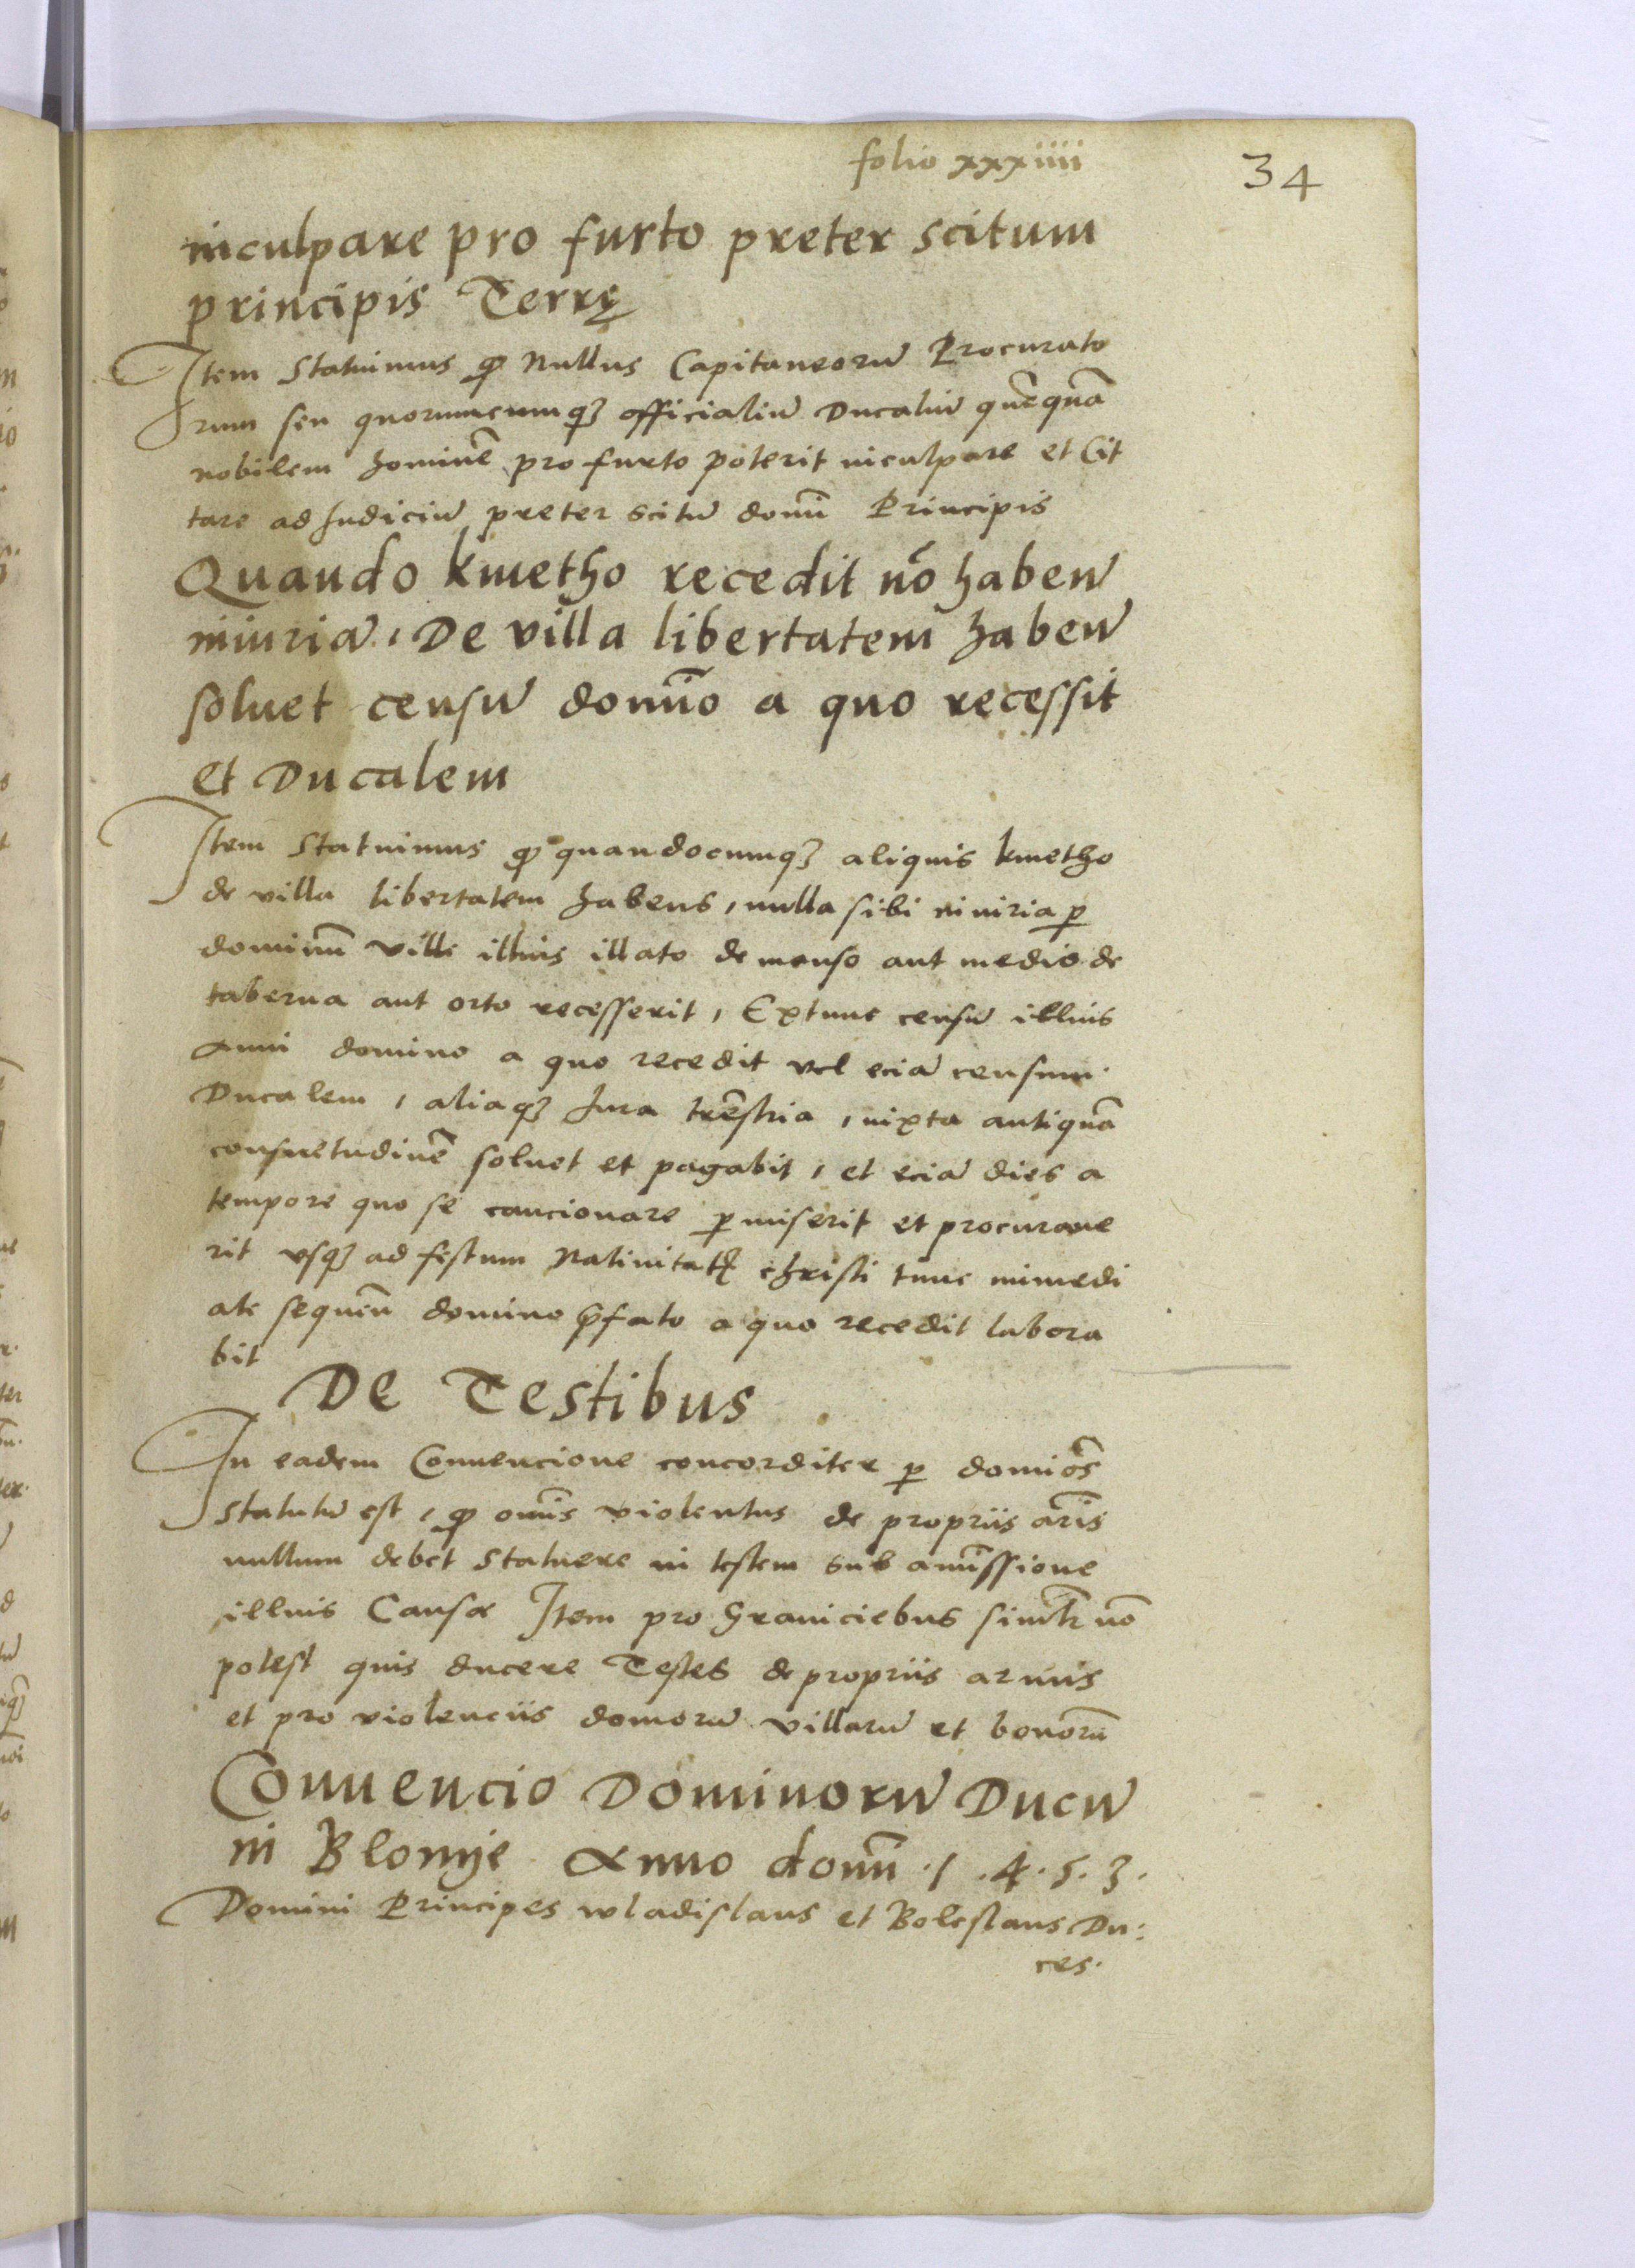 folio xxxiiii
34
inculpare pro furto preter scitum
principis Terrę
Item Statuimus ꝙ Nullus Capitaneorū Procurato
rum seu quorumcumqꝫ officialiū Ducaliū quēquā
nobilem hominē pro furto poterit inculpare et Cit
tare ad Judiciū preter scitū domī Principis
Quando kmetho recedit nō habeñ
iniuriā, De villa libertatem habeñ
soluet censū domīo a quo recessit
et Ducalem
Item Statuimus ꝙ quandocumqꝫ aliquis kmetho
de villa libertatem habens, nulla sibi iniuria ꝑ
dominū ville illius illato de manso aut medio de
taberna aut orto recesserit, Extunc censū illius
anni domino a quo recedit vel eciā censum
Ducalem, aliaqꝫ Jura trēstria, iuxta antiquā
consuetudinē soluet et pagabit, et eciā dies a
tempore quo se caucionare ꝑmiserit et procuraue
rit vsqꝫ ad festum Natiuitatꝭ christi tunc immedi
ate sequeñ domino p̄fato a quo recedit labora
bit
De Testibus
In eadem Conuencione concorditer ꝑ domiōs
statutū est, ꝙ om̄is violentus de propriis arīs
nullum debet statuere in testem sub amissione
illius Causæ Item pro Graniciebus simlr̄ nō
potest quis ducere Testes de propriis armis
et pro violenciis domorū villarū et bonorū
Conuencio Dominorū Ducū
in Blonye Anno domī .1.4.5.3.
Domini Principes wladislaus et Boleslaus Du:
ces.